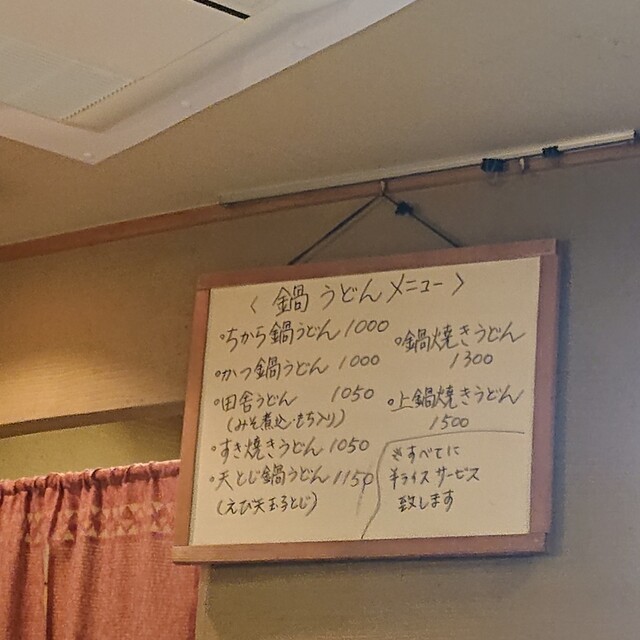 〈 鍋うどんメニュー 〉
・ちから鍋うどん 1000
・かつ鍋うどん 1000
・田舎うどん 1050
(みそ煮込・もち入り)
・すき焼きうどん 1050
・天とじ鍋うどん 1150
(えび天玉子とじ)
・鍋焼きうどん
1300
・上鍋焼きうどん
1500
※すべてに
半ライスサービス
致します